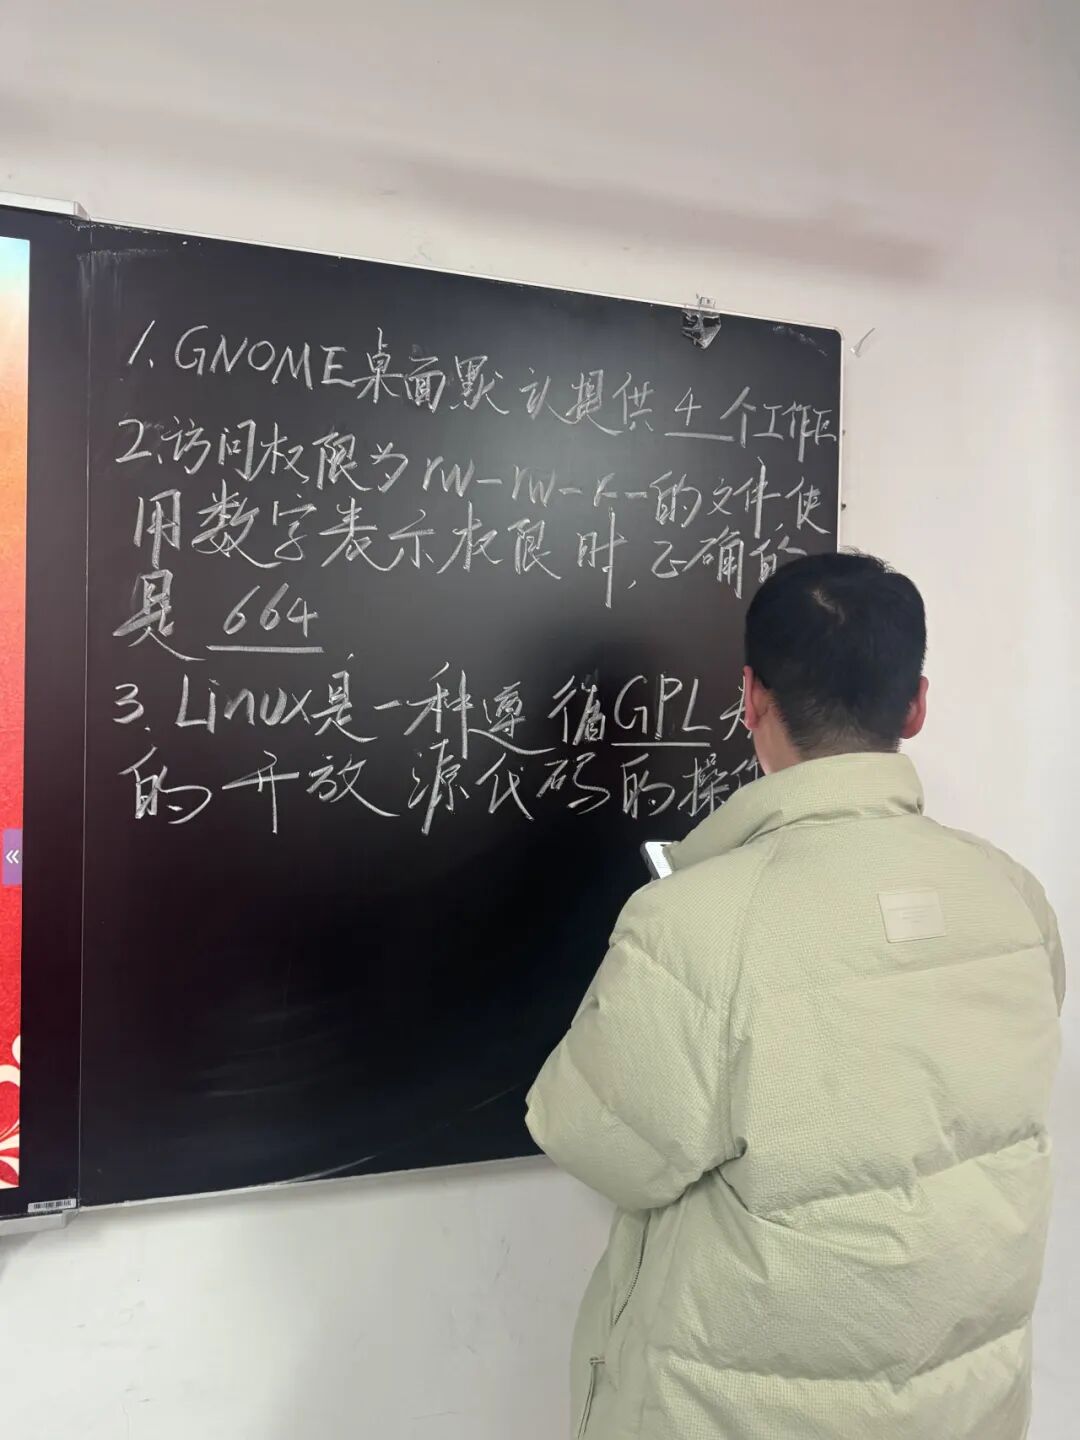 1. GNOME桌面默认提供 4 个工作区
2.访问权限为rw-rw-r--的文件,使
用数字表示权限时,正确的
是 664.
3. Linux是一种遵循GPL
的开放源代码的操作
«